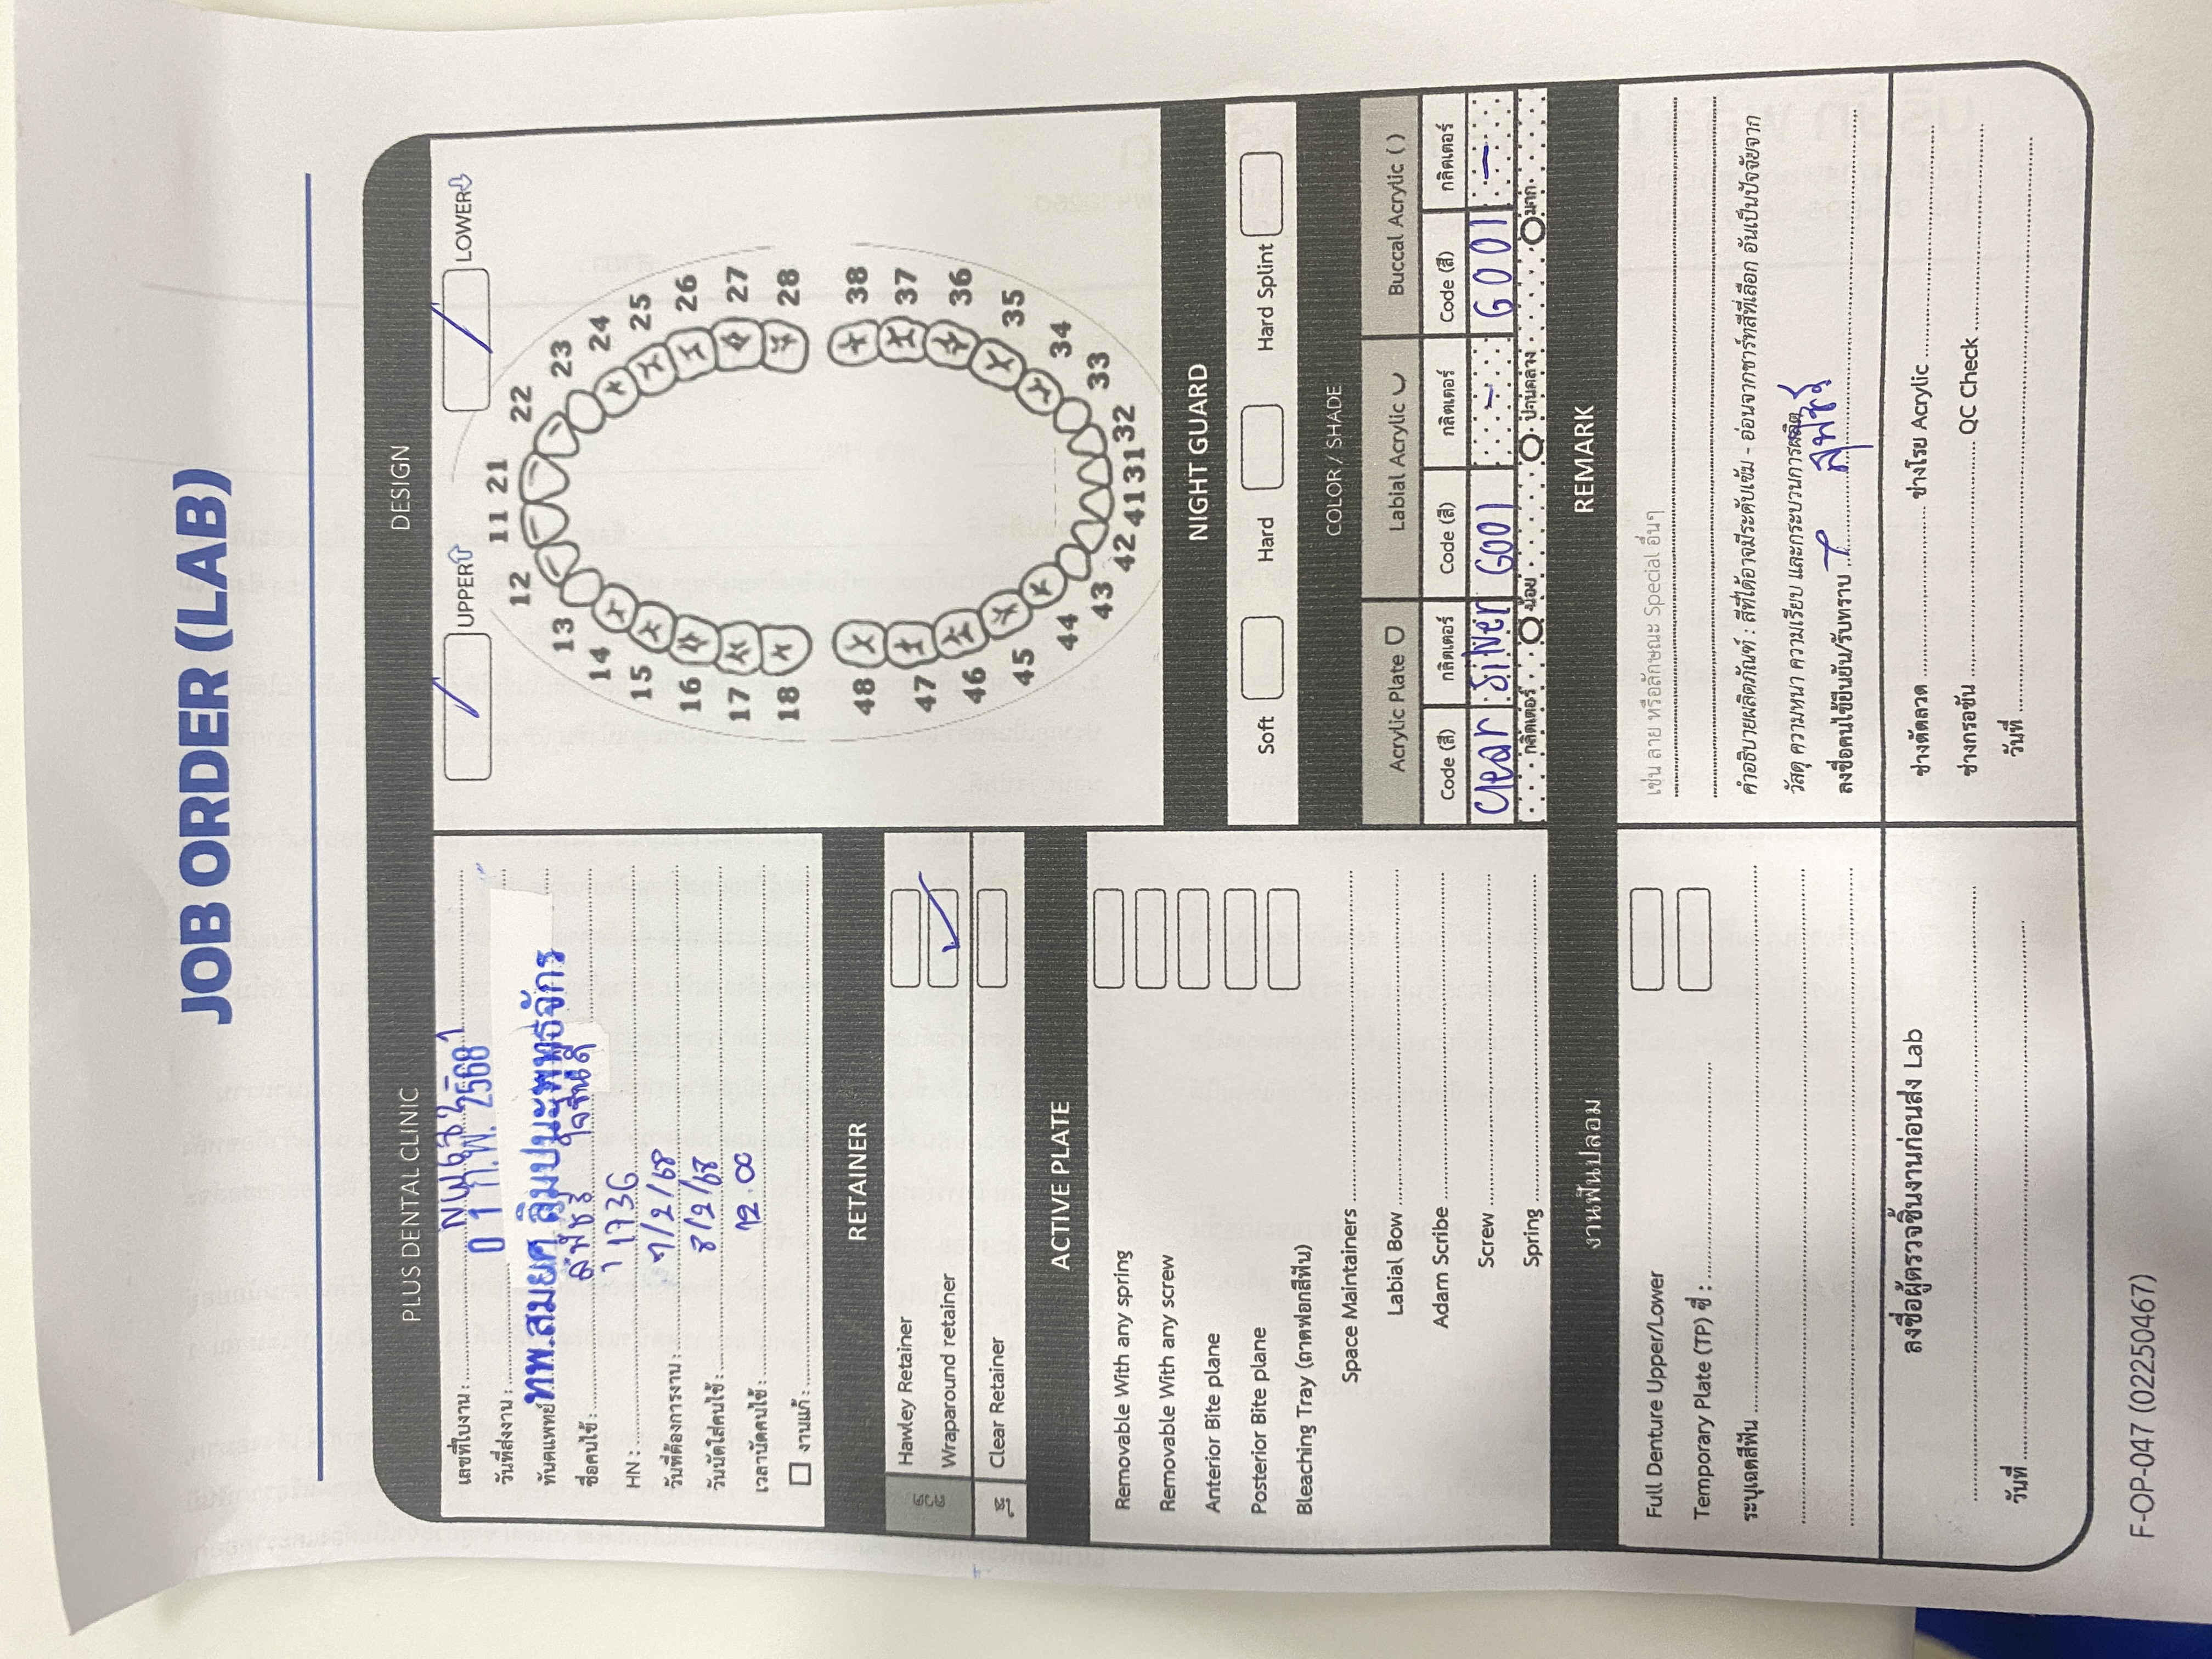 JOB ORDER (LAB)
PLUS DENTAL CLINIC
เลขที่ใบงาน :
วันที่ส่งงาน : 0 1 ก.พ. 2568
ทันตแพทย์ ทพ.สมยศ ลิมปนะพุทธจักร
ชื่อคนไข้ : สุพัชรี
HN : 11736
วันที่ต้องการงาน : 7/2/68
วันนัดใส่คนไข้ : 8/2/68
เวลานัดคนไข้ : 12.00
งานแก้ :
RETAINER
ลวด
Hawley Retainer
Wraparound retainer
ใส
Clear Retainer
ACTIVE PLATE
Removable With any spring
Removable With any screw
Anterior Bite plane
Posterior Bite plane
Bleaching Tray (ถาดฟอกสีฟัน)
Space Maintainers
Labial Bow
Adam Scribe
Screw
Spring
งานฟันปลอม
Full Denture Upper/Lower
Temporary Plate (TP) ซี่ :
ระบุเฉดสีฟัน
ลงชื่อผู้ตรวจชิ้นงานก่อนส่ง Lab
วันที่
DESIGN
UPPER
LOWER
11 21
12 22
13 23
14 24
15 25
16 26
17 27
18 28
48 38
47 37
46 36
45 35
44 34
43 33
42 41 31 32
NIGHT GUARD
Soft Hard Hard Splint
COLOR / SHADE
Acrylic Plate Labial Acrylic Buccal Acrylic ( )
Code (สี) กลิตเตอร์ Code (สี) กลิตเตอร์ Code (สี) กลิตเตอร์
Clear Silver G001 - G001 -
กลิตเตอร์ น้อย ปานกลาง มาก
REMARK
เช่น ลาย หรือลักษณะ Special อื่นๆ
คำอธิบายผลิตภัณฑ์ : สีที่ได้อาจมีระดับเข้ม - อ่อนจากชาร์ทสีที่เลือก อันเป็นปัจจัยจาก
วัสดุ ความหนา ความเรียบ และกระบวนการผลิต
ลงชื่อคนไข้ยืนยัน/รับทราบ สุพัชรี
ช่างดัดลวด ช่างโรย Acrylic
ช่างกรอขัน QC Check
วันที่
F-OP-047 (02250467)